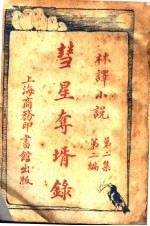 林譯小說
第二集
第二編
彗星奪壻錄
上海商務印
書館出版